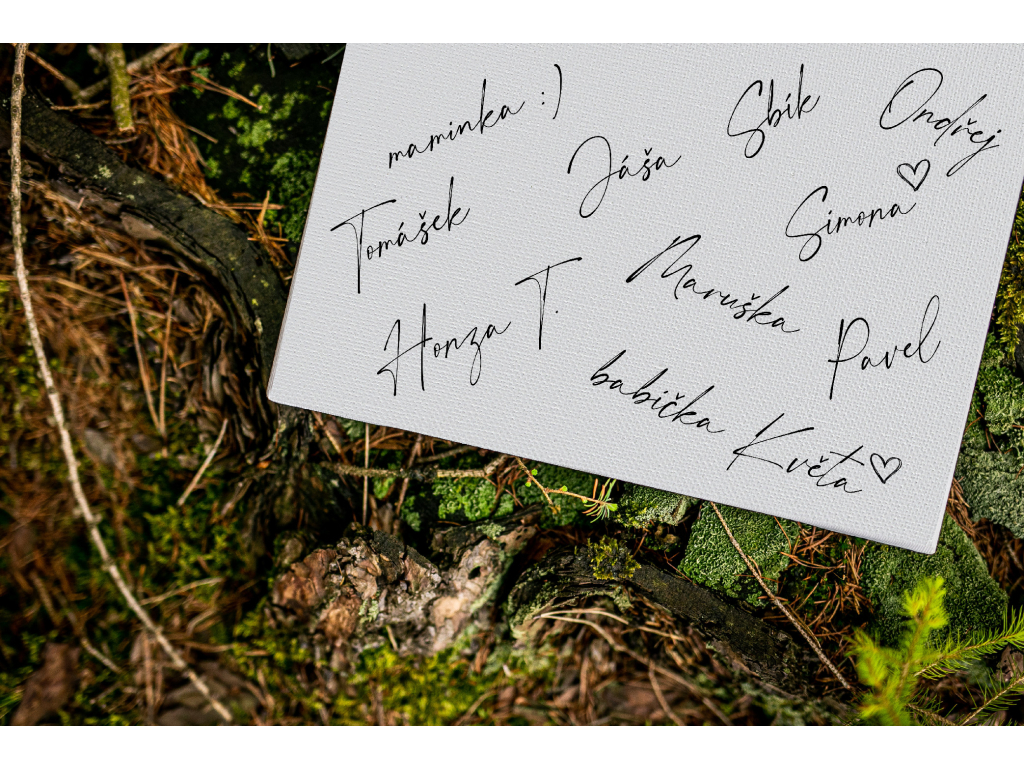 maminka :)
Jáša
Sbík
Ondřej
Tomášek
Simona ♡
Honza T.
Maruška
Pavel
babička Květa ♡